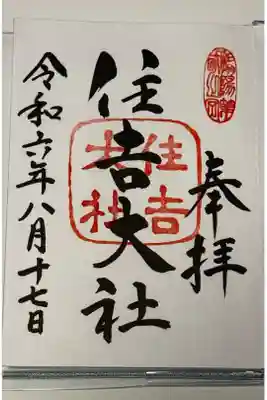 奉拝
住吉大社
令和六年八月十七日
住吉
大社